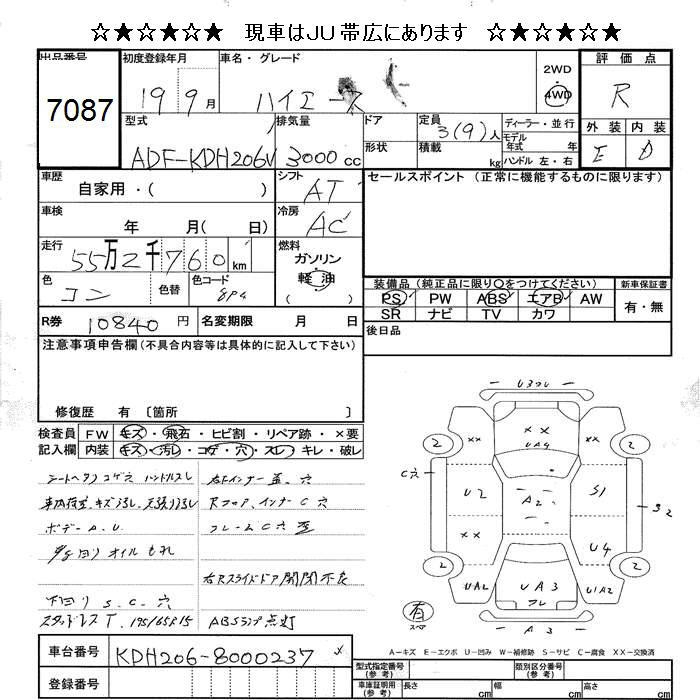 ☆★☆★☆★ 現車はJU帯広にあります ★☆★☆★☆
出品番号
7087
初度登録年月
19 9月
車名・グレード
ハイエース
2WD
4WD
評価点
R
外装 内装
E D
型式
ADF-KDH206V
排気量
3000 cc
ドア
形状
定員
3(9)人
積載
kg
ディーラー・並行
モデル
年式 年
ハンドル 左・右
車歴
自家用・( )
シフト
AT
車検
年 月( 日)
冷房
AC
走行
55万2千760km
燃料
ガソリン
軽油
( )
色
コン
色替
色コード
8P4
R券 10840円
名変期限 月 日
セールスポイント (正常に機能するものに限ります)
装備品 (純正品に限り○をつけてください)
PS PW ABS エアB AW
SR ナビ TV カワ
新車保証書
有・無
後日品
注意事項申告欄(不具合内容等は具体的に記入して下さい)
修復歴 有〔箇所 〕
検査員
記入欄
FW キズ・飛石・ヒビ割・リペア跡・×要
内装 キズ・汚レ・コゲ・穴・スレ・キレ・破レ
シートヘタリコゲ穴 ハンドルスレ
ボデーA.U
オイルもれ
下回り S.C.穴
スタッドレスT. 195/65R15
右Rスライドドア開閉不良
ABSランプ点灯
U3
××
UA4
××
2
2
C穴
U2
A2
S1
S2
××
U4
2
2
UA2
UA3
フレ
U1A2
A3
有
スペア
A-キズ E-エクボ U-凹み W-補修跡 S-サビ C-腐食 XX-交換済
車台番号
KDH206-8000237
登録番号
型式指定番号
(参考)
類別区分番号
(参考)
車庫証明用
(参考)
長さ cm
幅 cm
高さ cm